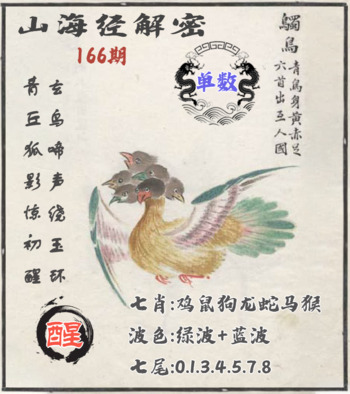 山海经解密
166期
单数
鸀鸟
青鸟身黄赤足
六首出互人國
玄鸟啼声绕玉环
青丘狐影惊初醒
醒
七肖:鸡鼠狗龙蛇马猴
波色:绿波+蓝波
七尾:0.1.3.4.5.7.8